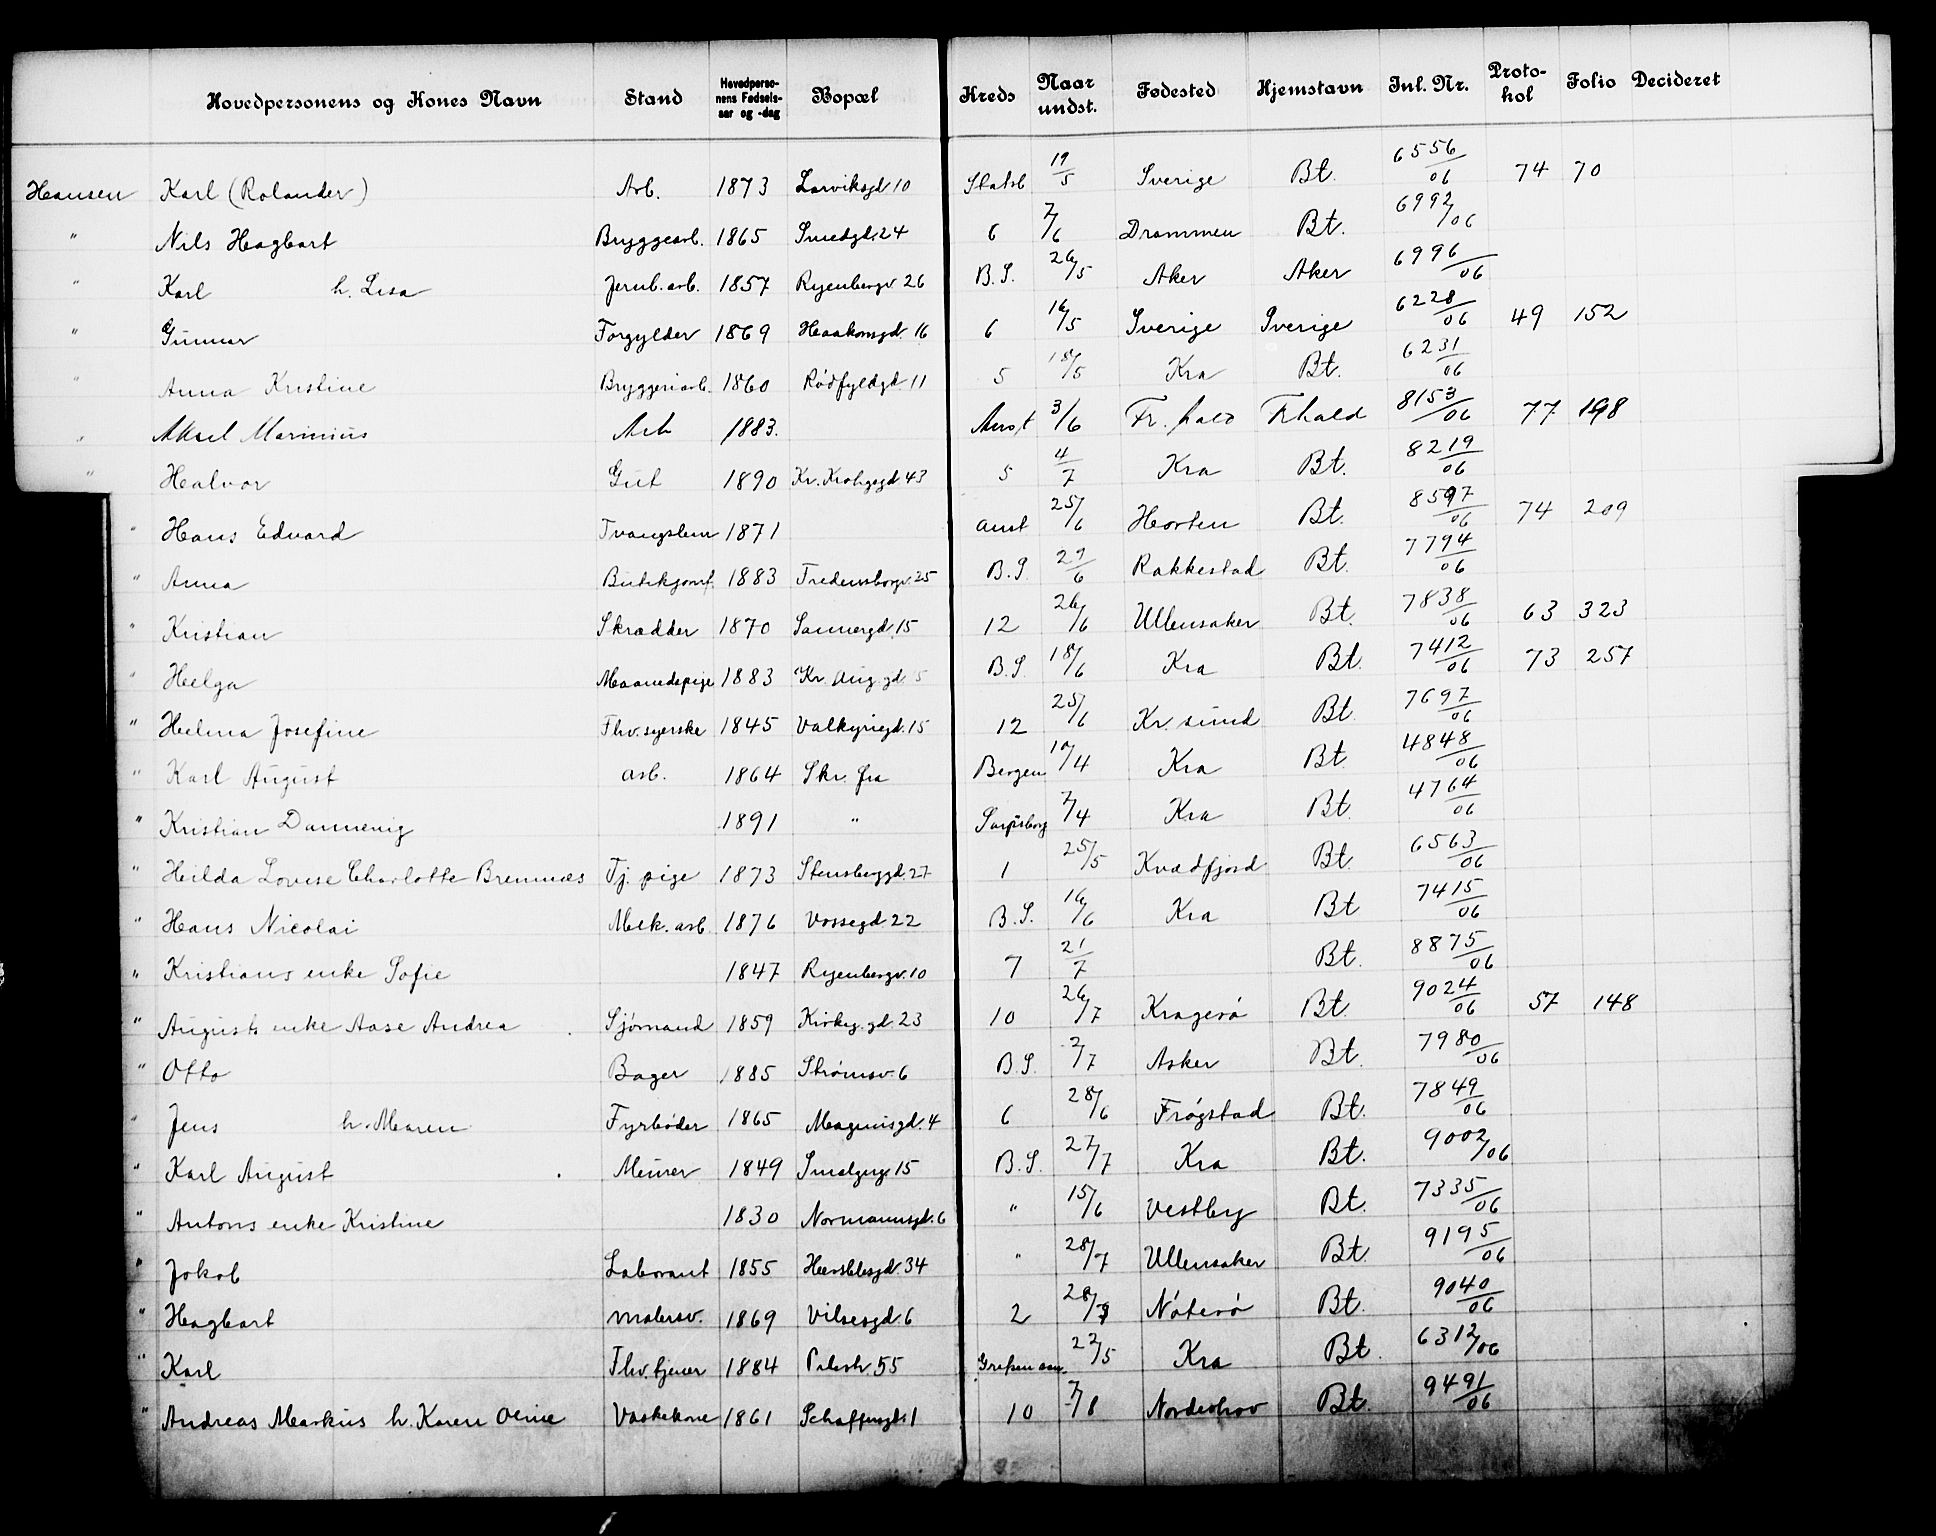 Hovedpersonens og Kones Navn Stand Hovedperso-nens Fødsels-aar og -dag Bopæl Kreds Naar undst. Fødested Hjemstavn Inl. Nr. Proto-kol Folio Decideret
Hansen Karl (Rolander) Arb. 1873 Larviksgd 10 Statsb 19/5 Sverige Bt. 6556/06 74 70
" Nils Hagbart Bryggearb. 1865 Smedgd. 24 6 7/6 Drammen Bt. 6992/06
" Karl h. Lisa Jernb. arb. 1857 Ryenbergv 26 B.S. 26/5 Aker Aker 6996/06
" Gunnar Forgylder 1869 Haakonsgd. 16 6 16/5 Sverige Sverige 6228/06 49 152
" Anna Kristine Bryggeriarb. 1860 Rødfyldgd. 11 5 18/5 Kra Bt. 6231/06
" Aksel Marinius Arb 1883. Anst 3/6 Fr. hald Frhald 8153/06 77 198
" Halvor Gut 1890 Kr. Krohgsgd 43 5 4/7 Kra Bt. 8219/06
" Hans Edvard Tvangslem 1871 anst 25/6 Horten Bt. 8597/06 74 209
" Anna Butikjomf. 1883 Fredensborgv. 25 B.S. 29/6 Rakkestad Bt. 7794/06
" Kristian Skrædder 1870 Sannergd. 15 12 26/6 Ullensaker Bt. 7838/06 63 323
" Helga Maanedspige 1883 Kr. Aug. gd. 5 B.S. 18/6 Kra Bt. 7412/06 73 257
" Helma Josefine Fhv. syerske 1845 Valkyriegd. 15 12 25/6 Kr. sund Bt 7697/06
" Karl August arb. 1864 Skr. fra Bergen 10/4 Kra Bt 4848/06
" Kristian Dannevig 1891 " Sarpsborg 7/4 Kra Bt. 4764/06
" Hilda Lovise Charlotte Bremnæs Tj. pige 1873 Stensberggd. 27 1 25/5 Kvædfjord Bt 6563/06
" Hans Nicolai Mek. arb. 1876 Vossegd. 22 B.S. 16/6 Kra Bt 7415/06
" Kristians enke Sofie 1847 Ryenbergv. 10 7 21/7 Bt. 8875/06
" Augusts enke Aase Andrea Sjømand 1859 Kirkeg. gd. 23 10 26/7 Kragerø Bt. 9024/06 57 148
" Otto Bager 1885 Strømsv. 6 B.S. 2/7 Asker Bt. 7980/06
" Jens h. Maren Fyrbøder 1865 Magnusgd. 4 6 28/6 Frøgstad Bt. 7849/06
" Karl August Murer 1849 Smalgng. 15 B.S. 27/7 Kra Bt. 9002/06
" Antons enke Kristine 1830 Normannsgd. 6 " 15/6 Vestby Bt. 7335/06
" Jakob Laborant 1855 Herslebsgd. 34 " 28/7 Ullensaker Bt. 9195/06
" Hagbart malersv. 1869 Vilsesgd. 6 2 28/7 Nøterø Bt. 9040/06
" Karl Fhv. tjener 1884 Pilestr. 55 Grefsen san 22/5 Kra Bt. 6312/06
" Andreas Markus h. Karen Oline Vaskekone 1861 Schafftengd. 1 10 7/8 Norderhov Bt. 9491/06